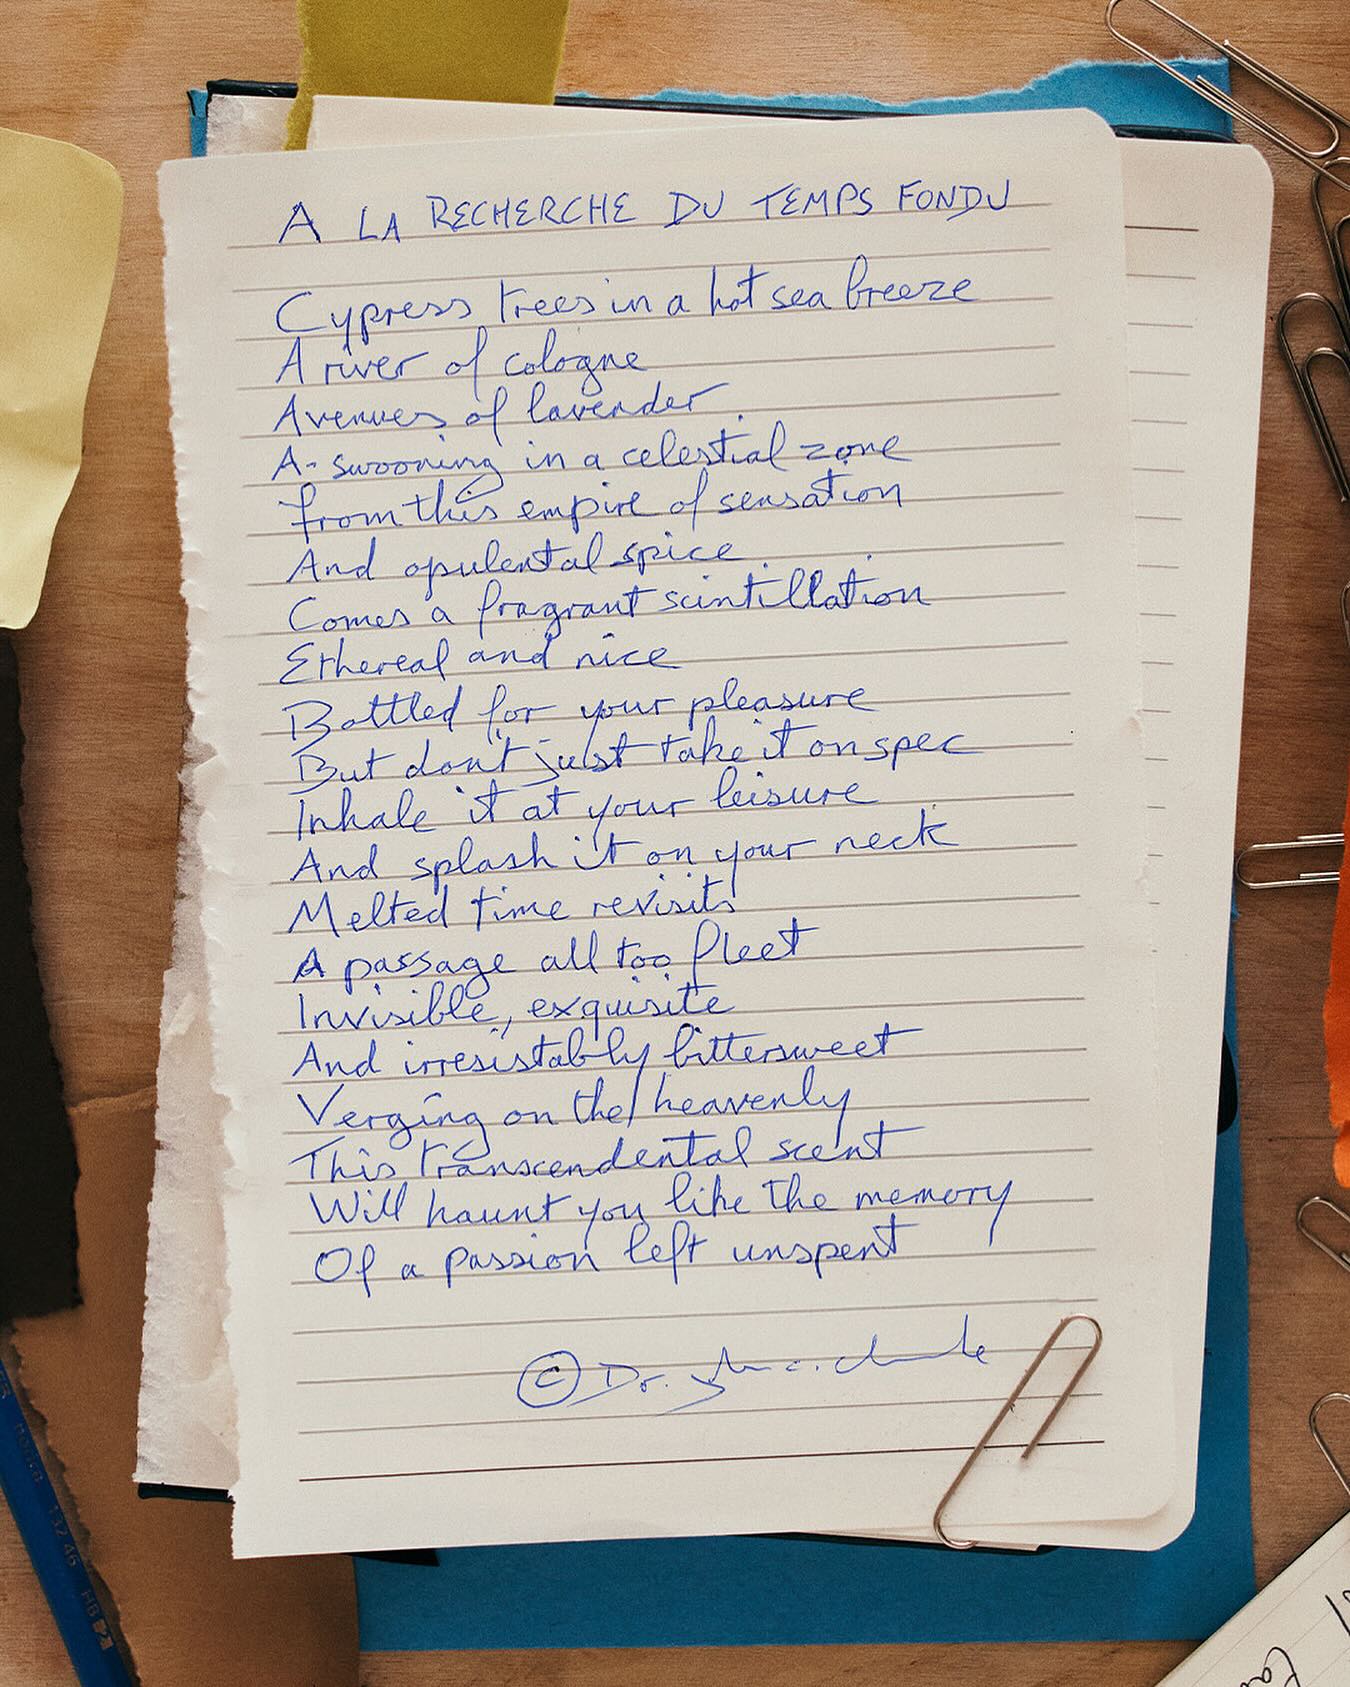 A LA RECHERCHE DU TEMPS FONDU
Cypress trees in a hot sea breeze
A river of cologne
Avenues of lavender
A-swooning in a celestial zone
From this empire of sensation
And opulental spice
Comes a fragrant scintillation
Ethereal and nice
Bottled for your pleasure
But don't just take it on spec
Inhale it at your leisure
And splash it on your neck
Melted time revisits
A passage all too fleet
Invisible, exquisite
And irresistably bittersweet
Verging on the heavenly
This transcendental scent
Will haunt you like the memory
Of a passion left unspent
© Dr. John C. Clarke
132 46 HB 2